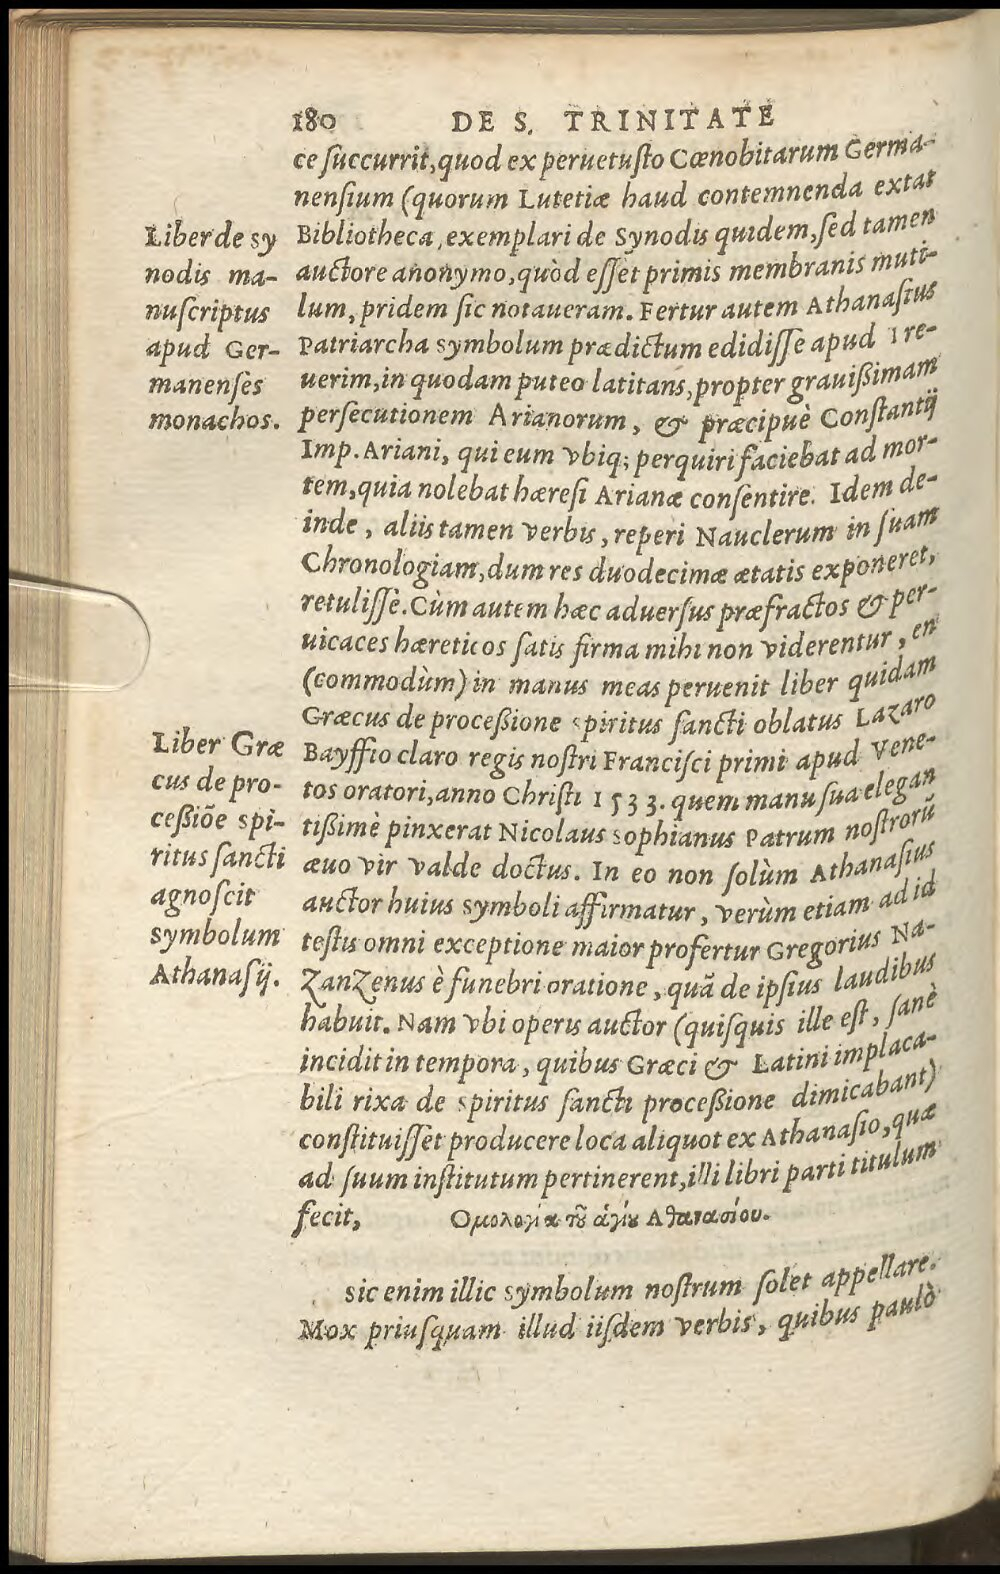 180 DE S. TRINITATE
ce ſuccurrit, quod ex peruetuſto Cœnobitarum Germa-
nenſium (quorum Lutetiæ haud contemnenda extat
Bibliotheca, exemplari de Synodis quidem, ſed tamen
auctore anonymo, quòd eſſet primis membranis muti-
lum, pridem ſic notaueram. Fertur autem Athanaſius
Patriarcha symbolum prædictum edidiſſe apud Tre-
uerim, in quodam puteo latitans, propter grauißimam
perſecutionem Arianorum, & præcipuè Conſtantij
Imp. Ariani, qui eum vbiq; perquiri faciebat ad mor-
tem, quia nolebat hæreſi Arianæ conſentire. Idem de-
inde, aliis tamen verbis, reperi Nauclerum in ſuam
Chronologiam, dum res duodecimæ ætatis exponeret,
retuliſſe. Cùm autem hæc aduerſus præfractos & per-
uicaces hæreticos ſatis firma mihi non viderentur, en
(commodùm) in manus meas peruenit liber quidam
Græcus de proceßione spiritus ſancti oblatus Lazaro
Bayffio claro regis noſtri Franciſci primi apud Vene-
tos oratori, anno Chriſti 1533. quem manu ſua elegan
tißimè pinxerat Nicolaus Sophianus Patrum noſtrorū
æuo vir valde doctus. In eo non ſolùm Athanaſius
auctor huius symboli affirmatur, verùm etiam ad id
teſtis omni exceptione maior profertur Gregorius Na-
zanzenus è funebri oratione, quā de ipſius laudibus
habuit. Nam vbi operis auctor (quiſquis ille eſt, ſanè
incidit in tempora, quibus Græci & Latini implaca-
bili rixa de spiritus ſancti proceßione dimicabant)
conſtituiſſet producere loca aliquot ex Athanaſio, quæ
ad ſuum inſtitutum pertinerent, illi libri parti titulum
fecit, Ομολογία τοῦ ἁγίου Αθανασίου.
sic enim illic symbolum noſtrum ſolet appellare.
Mox priuſquam illud iiſdem verbis, quibus paulò
Liber de sy
nodis ma-
nuſcriptus
apud Ger-
manenſes
monachos.
Liber Græ
cus de pro-
ceßiōe spi-
ritus ſancti
agnoſcit
symbolum
Athanaſij.